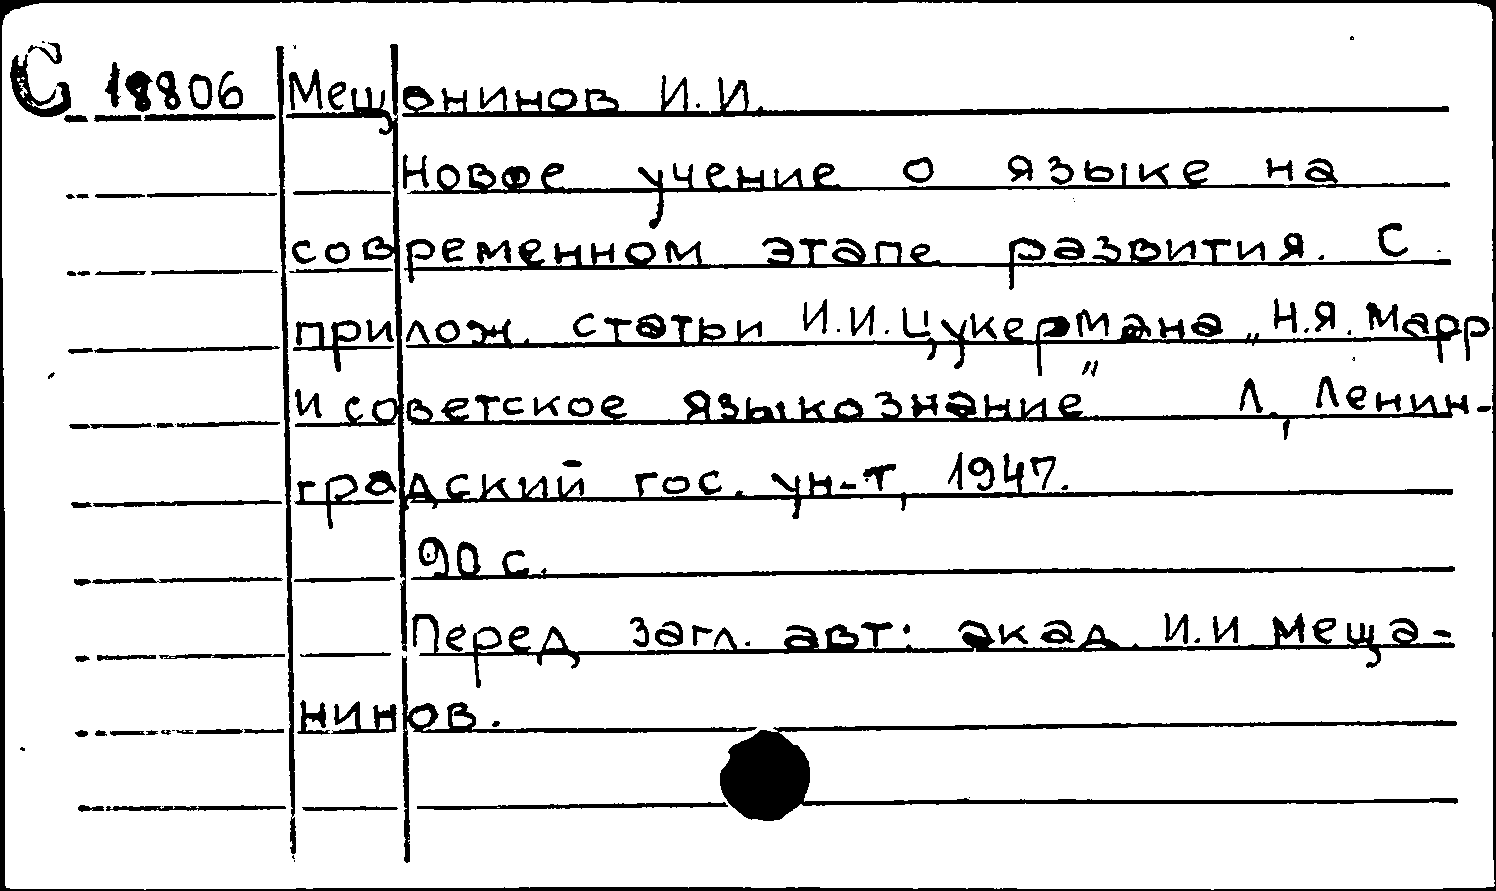 С 18806 Мещанинов И.И.
Новое учение о языке на
современном этапе развития. С
прилож. статьи И.И.Цукермана „Н.Я. Марр
и советское языкознание" Л., Ленин-
градский гос. ун-т, 1947.
90 с.
Перед загл. авт: акад. И.И Меща-
нинов.